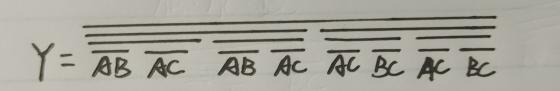 Y = \overline{\overline{\overline{\overline{\overline{AB} \, \overline{AC}} \, \overline{\overline{AB} \, \overline{AC}}} \, \overline{\overline{\overline{AC} \, \overline{BC}} \, \overline{\overline{AC} \, \overline{BC}}}}}